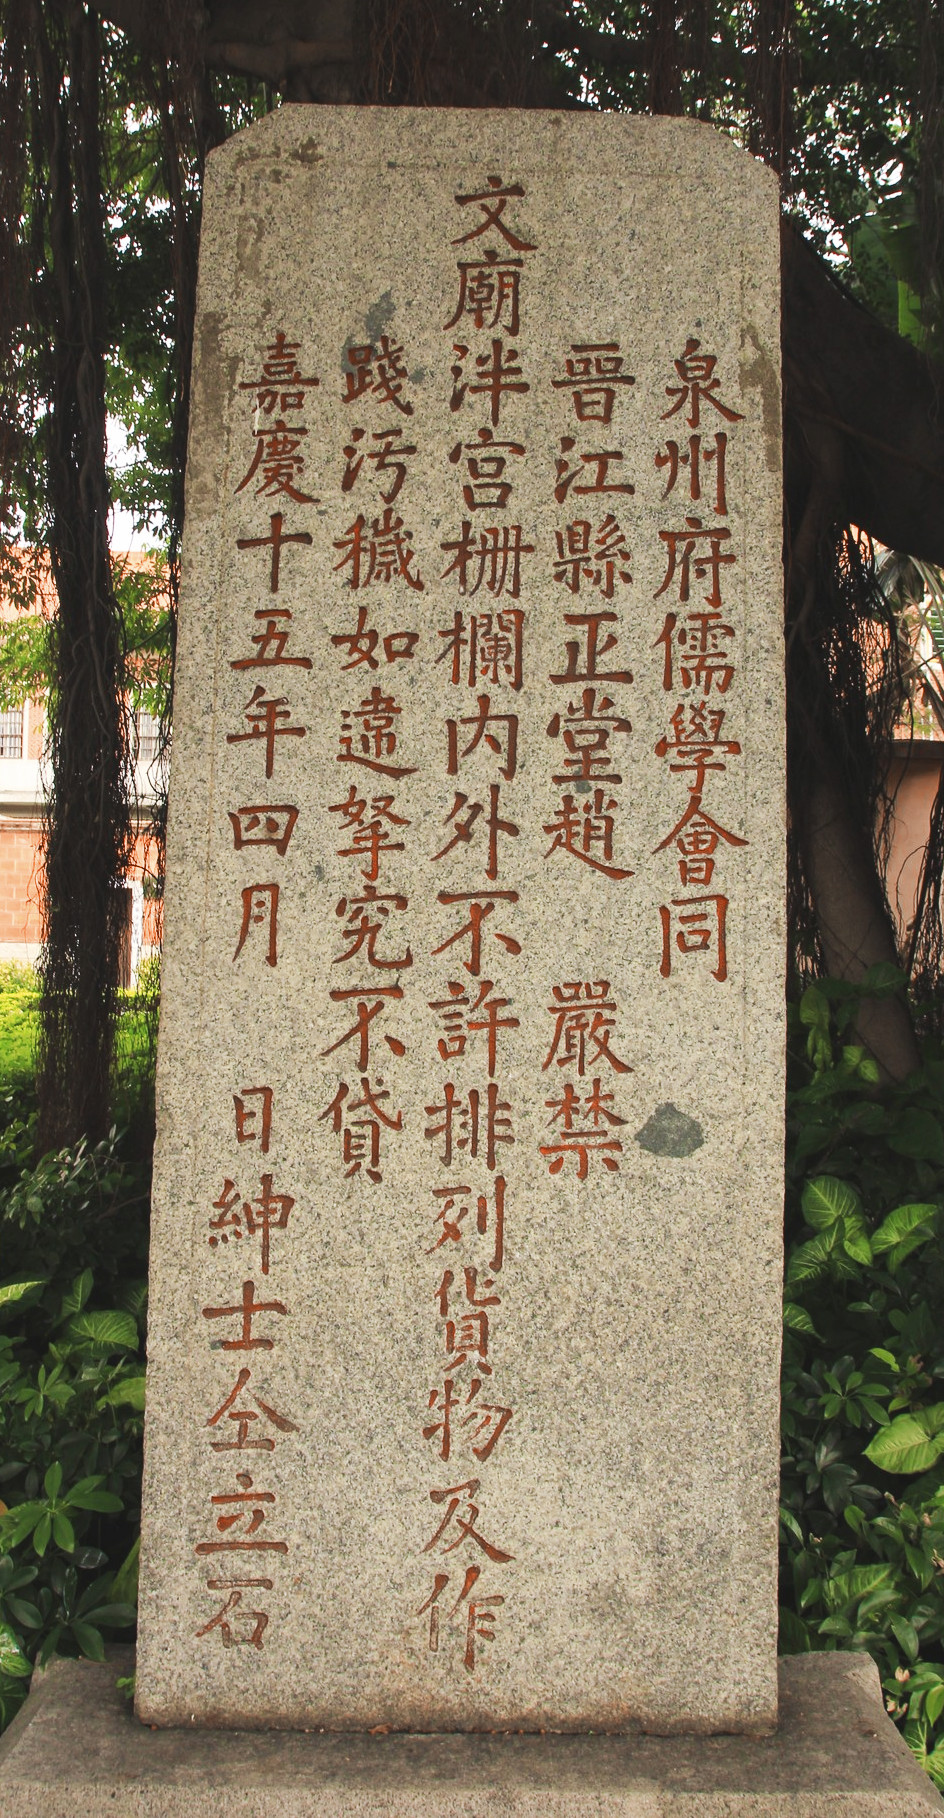 泉州府儒學會同
晉江縣正堂趙 嚴禁
文廟泮宮栅欄内外不許排列貨物及作
踐汚穢如違拏究不貸
嘉慶十五年四月 日紳士仝立石